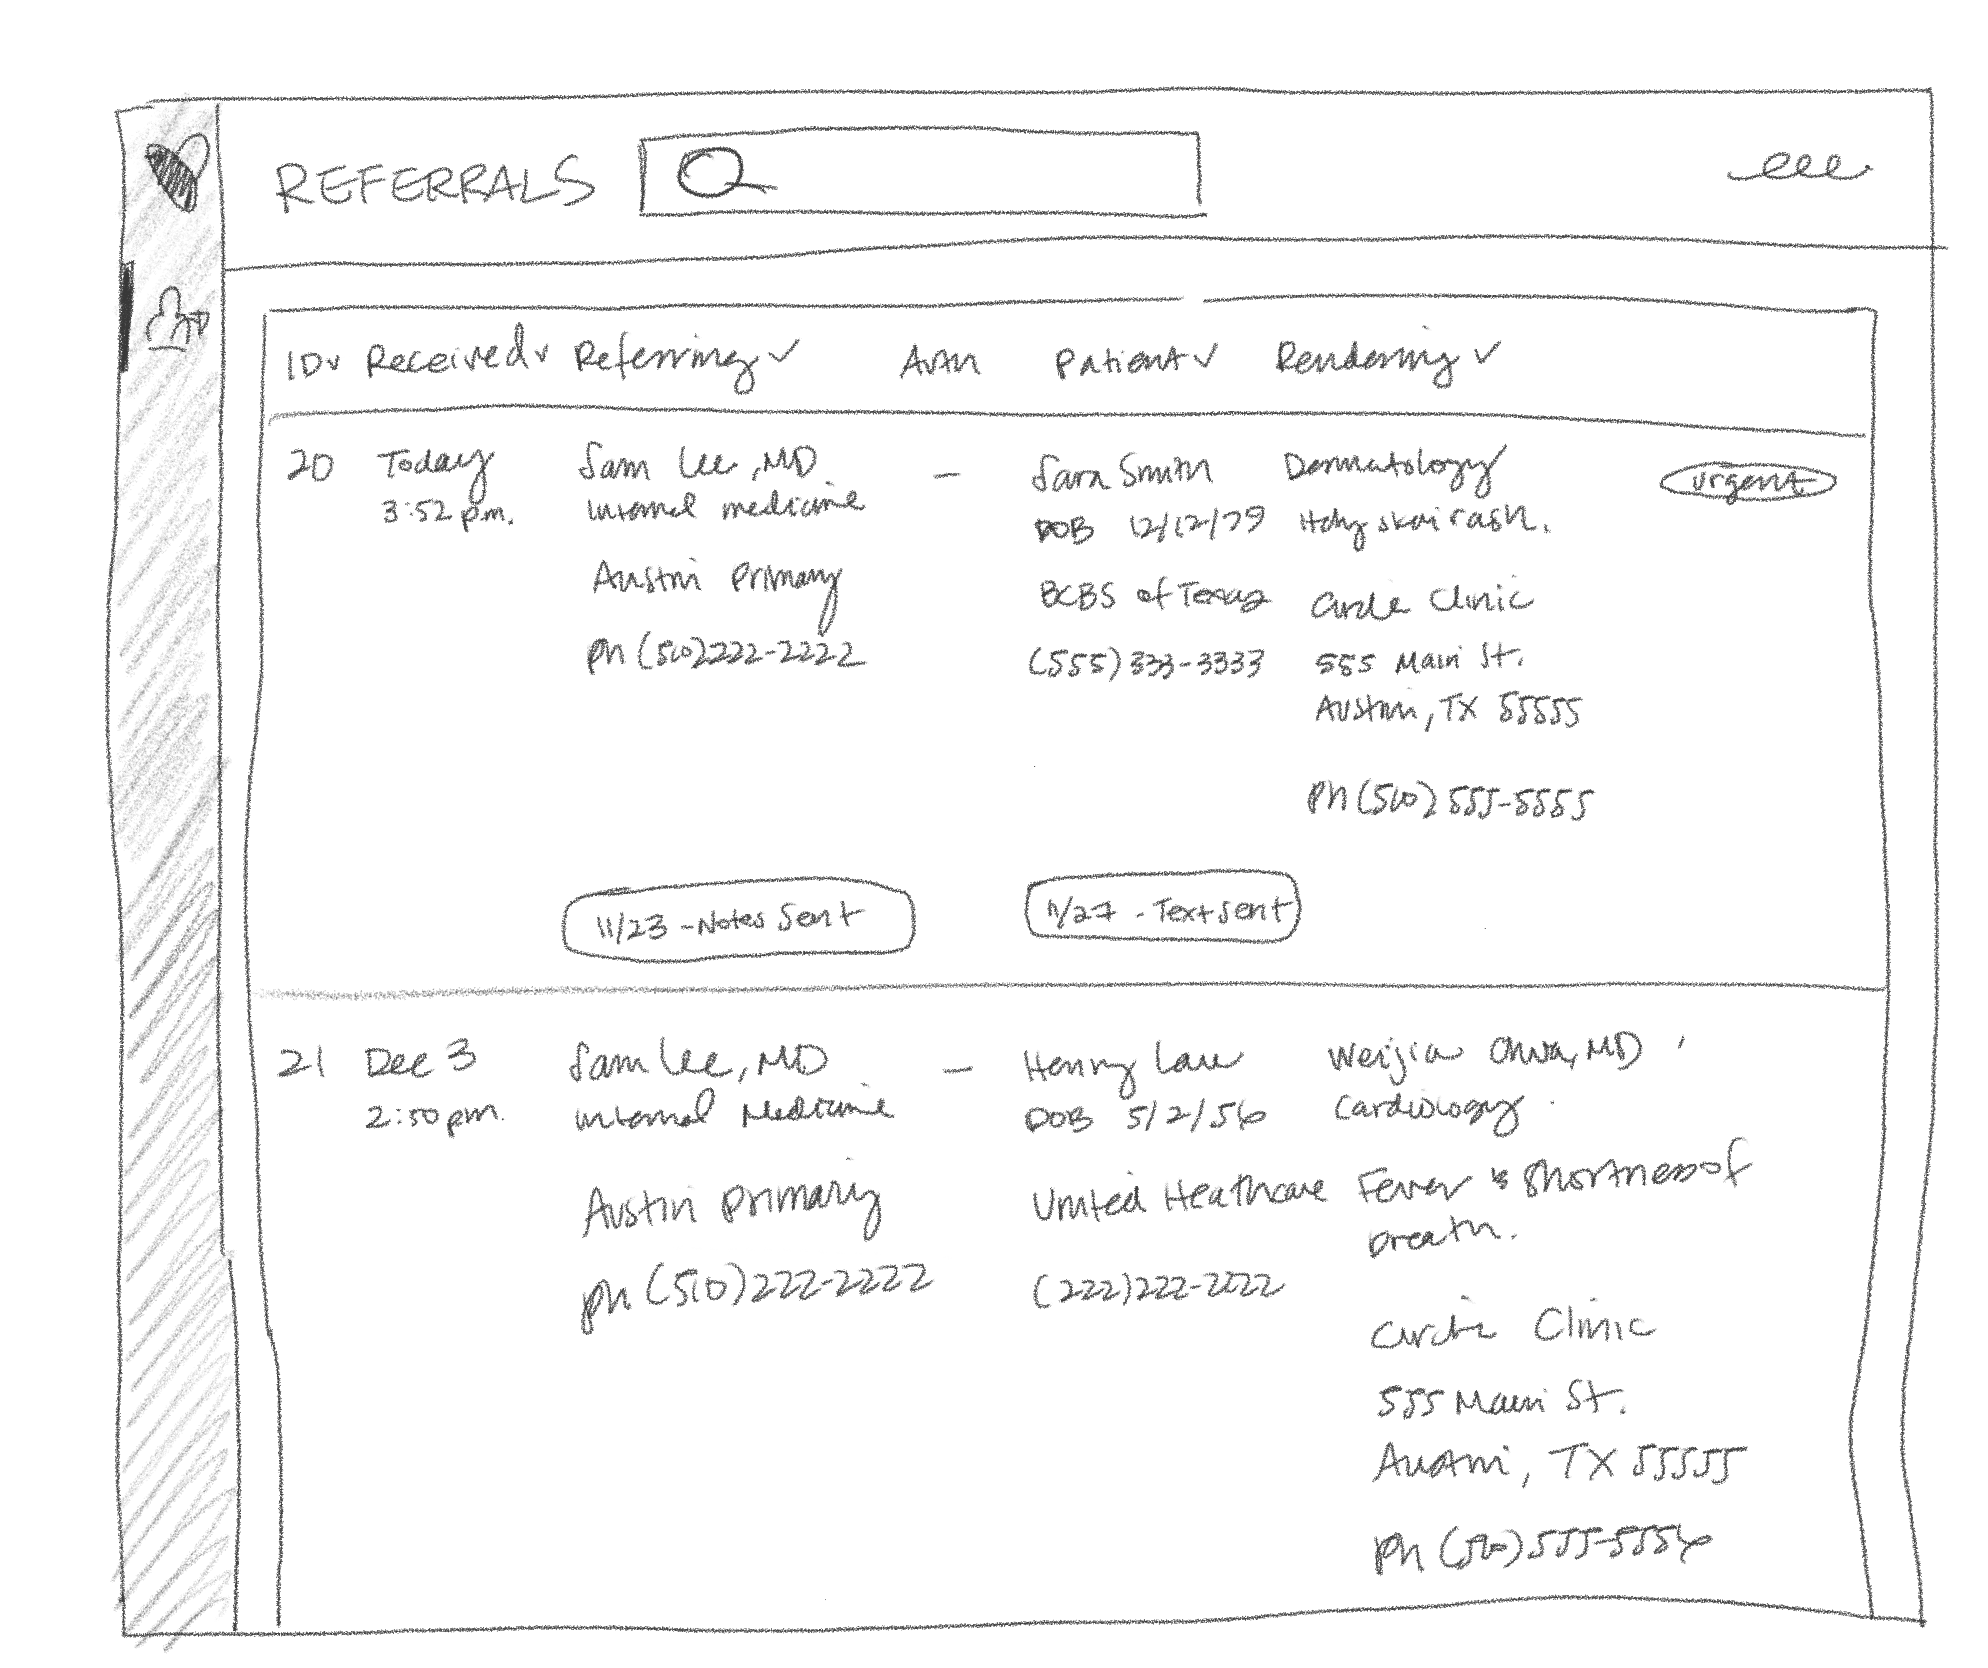 REFERRALS
ID Received Referring Auth Patient Rendering
20 Today Sam Lee, MD - Sara Smith Dermatology urgent
3:52 p.m. Internal medicine DOB 12/12/79 Itchy skin rash.
Austin Primary BCBS of Texas Circle Clinic
Ph (510) 222-2222 (555) 333-3333 555 Main St.
Austin, TX 55555
Ph (510) 555-5555
11/23 - Notes Sent 11/27 - Text sent
21 Dec 3 Sam Lee, MD - Henry Law Weijia MD
2:50 pm. Internal Medicine DOB 5/2/56 Cardiology
Austin primary United Heathcare Fever & Shortness of
breath.
ph (510) 222-2222 (222) 222-2222
Circle Clinic
555 Main St.
Austin, TX 55555
ph (510) 555-5556